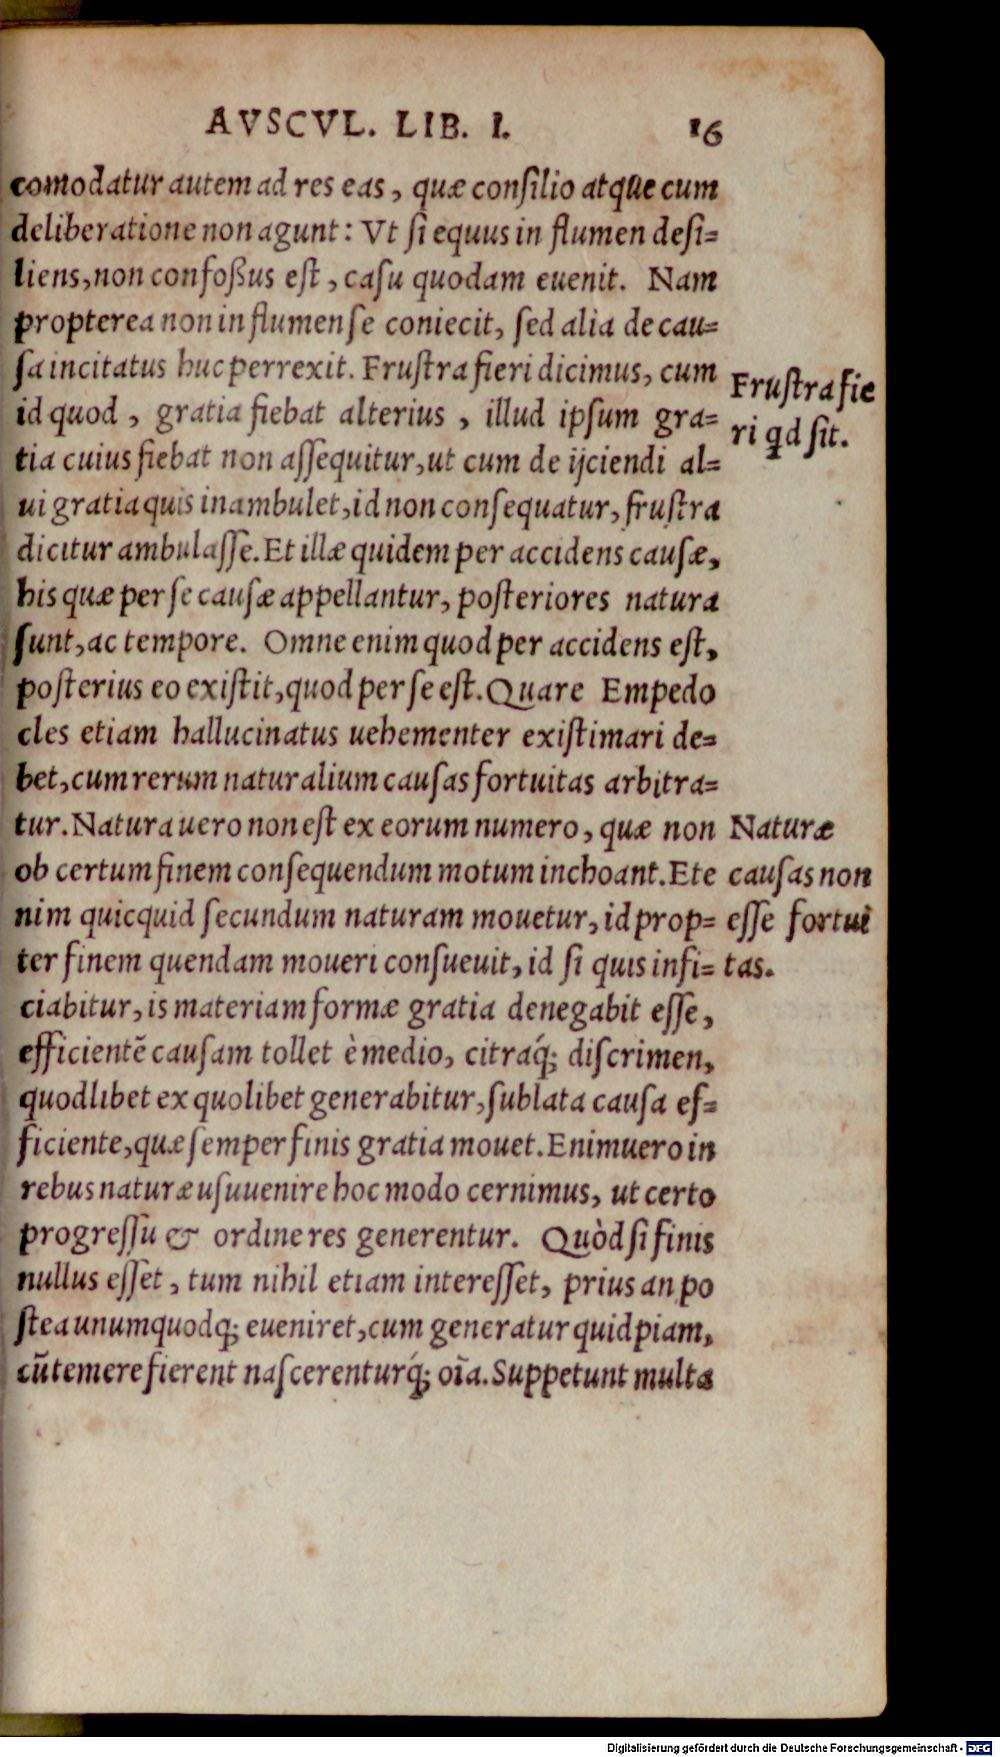 AVSCVL. LIB. I. 16
comodatur autem ad res eas, quæ conſilio atque cum
deliberatione non agunt: Vt ſi equus in flumen deſi=
liens, non confoßus eſt, caſu quodam euenit. Nam
propterea non in flumen ſe coniecit, ſed alia de cau=
ſa incitatus huc perrexit. Fruſtra fieri dicimus, cum
id quod, gratia fiebat alterius, illud ipſum gra=
tia cuius fiebat non aſſequitur, ut cum de ijciendi al=
ui gratia quis inambulet, id non conſequatur, fruſtra
dicitur ambulaſſe. Et illæ quidem per accidens cauſæ,
his quæ per ſe cauſæ appellantur, poſteriores natura
ſunt, ac tempore. Omne enim quod per accidens eſt,
poſterius eo exiſtit, quod per ſe eſt. Quare Empedo
cles etiam hallucinatus uehementer exiſtimari de=
bet, cum rerum naturalium cauſas fortuitas arbitra=
tur. Natura uero non eſt ex eorum numero, quæ non
ob certum finem conſequendum motum inchoant. Ete
nim quicquid ſecundum naturam mouetur, id prop=
ter finem quendam moueri conſueuit, id ſi quis infi=
ciabitur, is materiam formæ gratia denegabit eſſe,
efficientē cauſam tollet è medio, citraq́; diſcrimen,
quodlibet ex quolibet generabitur, ſublata cauſa ef=
ficiente, quæ ſemper finis gratia mouet. Enimuero in
rebus naturæ uſuuenire hoc modo cernimus, ut certo
progreſſu & ordine res generentur. Quòd ſi finis
nullus eſſet, tum nihil etiam intereſſet, prius an po
ſtea unumquodq; eueniret, cum generatur quidpiam,
cū temere fierent naſcerenturq́; oīa. Suppetunt multa
Fruſtra fie
ri qd ſit.
Naturæ
cauſas non
eſſe fortui
tas.
Digitalisierung gefördert durch die Deutsche Forschungsgemeinschaft - DFG